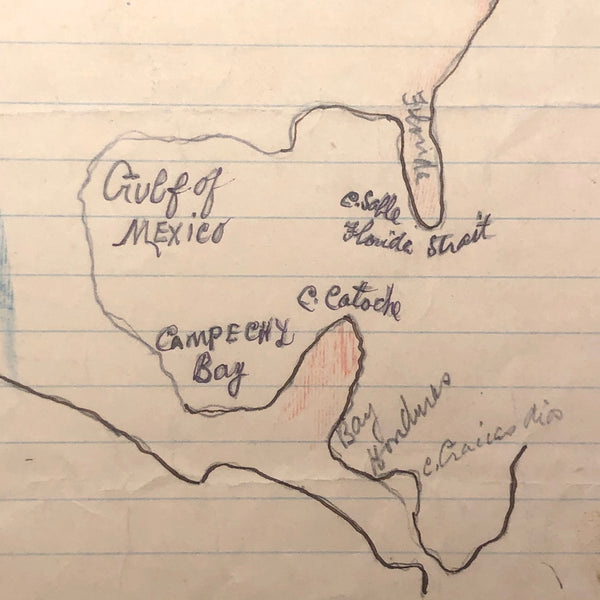 Florida
Gulf of
MEXICO
C. Sable
Florida Strait
C. Catoche
CAMPECHY
Bay
Bay
Honduras
C. Gracias dios